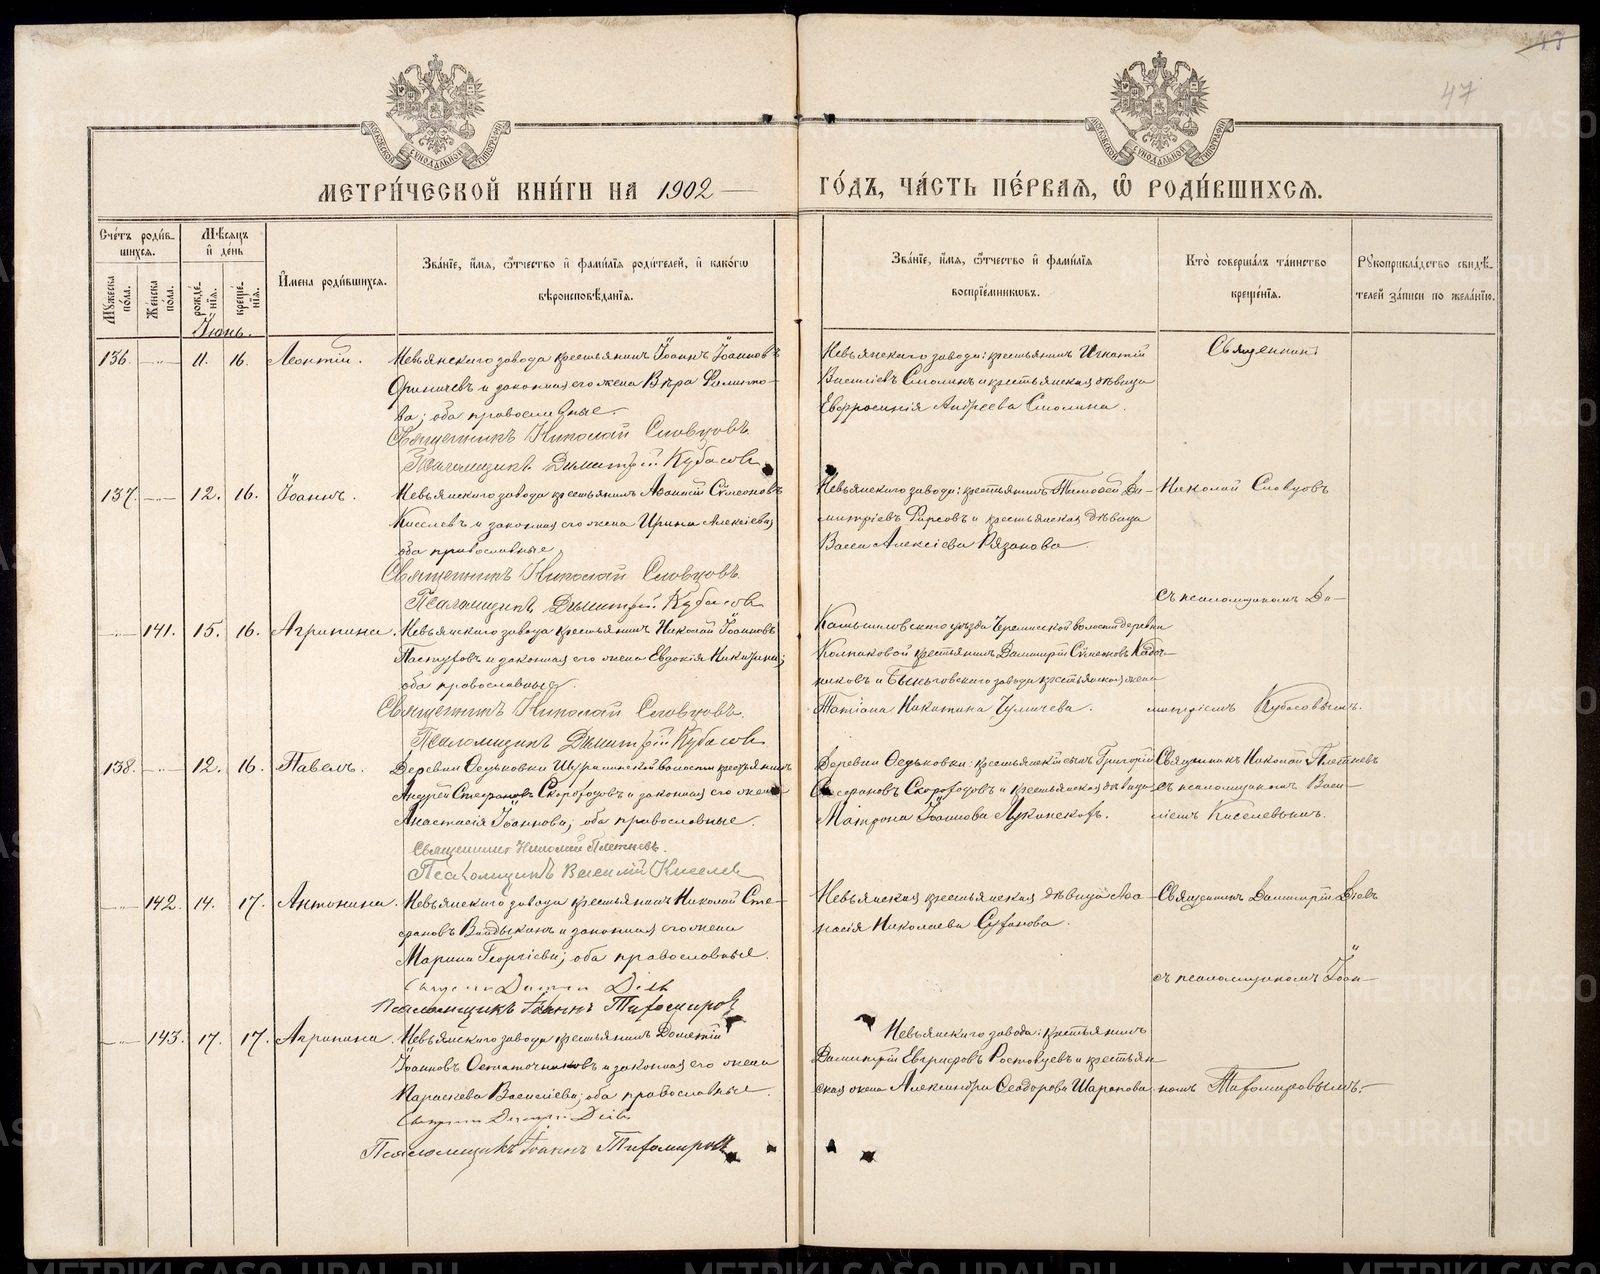 47
МЕТРИ́ЧЕСКОЙ КНИ́ГИ НА 1902
ГО́ДЪ, ЧА́СТЬ ПЕ́РВАЯ, Ѡ РОДИ́ВШИХСЯ.
МОСКОВСКОЙ СѴНОДАЛЬНОЙ ТИПОГРАФІИ
МОСКОВСКОЙ СѴНОДАЛЬНОЙ ТИПОГРАФІИ
Сче́тъ роди́в-
шихся.
Мѣ́сяцъ
и҆ де́нь
Му́жеска по́ла.
Же́нска по́ла.
рожде́-
нїя.
креще́-
нїя.
И҆мена̀ роди́вшихся.
Зва́нїе, и҆́мя, ѻ҆́тчество и҆ фами́лїя роди́телей, и҆ како́гѡ
вѣроисповѣ́данїя.
Зва́нїе, и҆́мя, ѻ҆́тчество и҆ фами́лїя
воспрїе́мникѡвъ.
Кто̀ соверша́лъ та́инство
креще́нїя.
Рꙋкоприкла́дство свидѣ́-
телей за́писи по жела́нїю.
Іюнь.
136. 11. 16. Леонтій.
Невьянскаго завода крестьянинъ Іоаннъ Іоанновъ
и законная его жена Вѣра Филиппо-
ва; оба православные.
Священникъ Николай Словцовъ.
Псаломщикъ Димитрій Кубасовъ
Невьянскаго завода: крестьянинъ Игнатій
Васильевъ Смолинъ и крестьянская дѣвица
Евфросинія Андреева Смолина.
Священникъ
137. 12. 16. Іоаннъ.
Невьянскаго завода крестьянинъ Аѳанасій Сѵмеоновъ
Киселевъ и законная его жена Ирина Алексіева;
оба православные
Священникъ Николай Словцовъ.
Псаломщикъ Димитрій Кубасовъ
Невьянскаго завода: крестьянинъ Тимоѳей Ди-
митріевъ Фирсовъ и крестьянская дѣвица
Васса Алексіева Рязанова.
Николай Словцовъ
съ псаломщикомъ Ди-
141. 15. 16. Агрипина.
Невьянскаго завода крестьянинъ Николай Іоанновъ
Пастуховъ и законная его жена Евдокія Никитина;
оба православные.
Священникъ Николай Словцовъ.
Псаломщикъ Димитрій Кубасовъ
Камышловскаго уѣзда Черемисской волости деревни
Колпаковой крестьянинъ Димитрій Сѵмеоновъ
и Быньговскаго завода крестьянская жена
Татіана Никитина
митріемъ Кубасовымъ.
138. 12. 16. Павелъ.
Деревни Ѳедьковки Шуралинской волости крестьянинъ
Андрей Стефановъ Скороходовъ и законная его жена
Анастасія Іоаннова; оба православные.
Священникъ Николай Плетневъ.
Псаломщикъ Василій Киселевъ
Деревни Ѳедьковки: крестьянскій сынъ Григорій
Стефановъ Скороходовъ и крестьянская дѣвица
Матрона Іоаннова
Священникъ Николай Плетневъ
съ псаломщикомъ Васи-
ліемъ Киселевымъ.
142. 14. 17. Антонина.
Невьянскаго завода крестьянинъ Николай Сте-
фановъ и законная его жена
Марина Георгіева; оба православные.
Псаломщикъ Іоаннъ Тихомировъ
Невьянская крестьянская дѣвица Аѳа-
насія Николаева
Священникъ Димитрій Діевъ
съ псаломщикомъ Іоан-
143. 17. 17. Агрипина.
Невьянскаго завода крестьянинъ Дометій
Іоанновъ Остаточниковъ и законная его жена
Параскева Васильева; оба православные.
Псаломщикъ Іоаннъ Тихомировъ
Невьянскаго завода: крестьянинъ
Димитрій Евграфовъ Ростовцевъ и крестьян-
ская жена Александра Ѳеодорова Шарапова
номъ Тихомировымъ.
METRIKI.GASO-URAL.RU